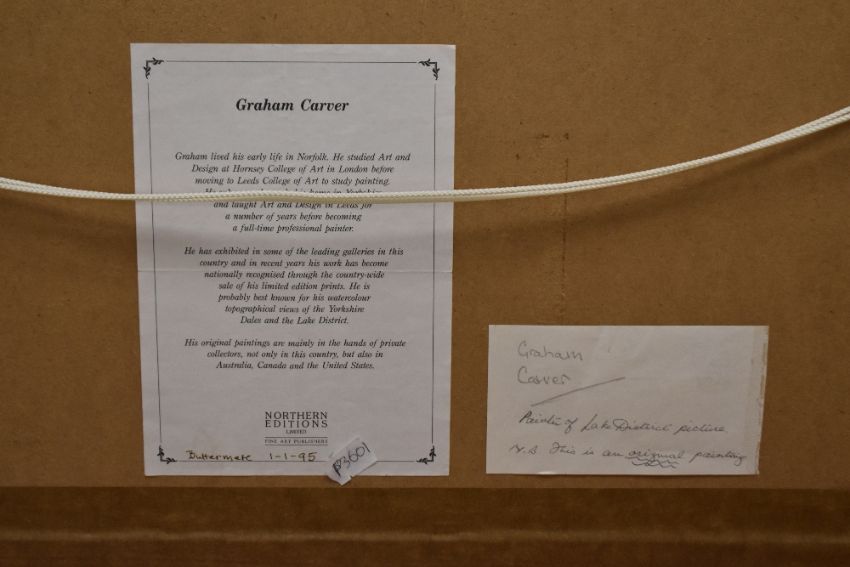 Graham Carver
Graham lived his early life in Norfolk. He studied Art and
Design at Hornsey College of Art in London before
moving to Leeds College of Art to study painting.
He home in Yorkshire
and taught Art and Design in Leeds for
a number of years before becoming
a full-time professional painter.
He has exhibited in some of the leading galleries in this
country and in recent years his work has become
nationally recognised through the country-wide
sale of his limited edition prints. He is
probably best known for his watercolour
topographical views of the Yorkshire
Dales and the Lake District.
His original paintings are mainly in the hands of private
collectors, not only in this country, but also in
Australia, Canada and the United States.
NORTHERN
EDITIONS
LIMITED
FINE ART PUBLISHERS
Buttermere 1-1-95
P3601
Graham
Carver
Painter of Lake District picture
N.B This is an original painting